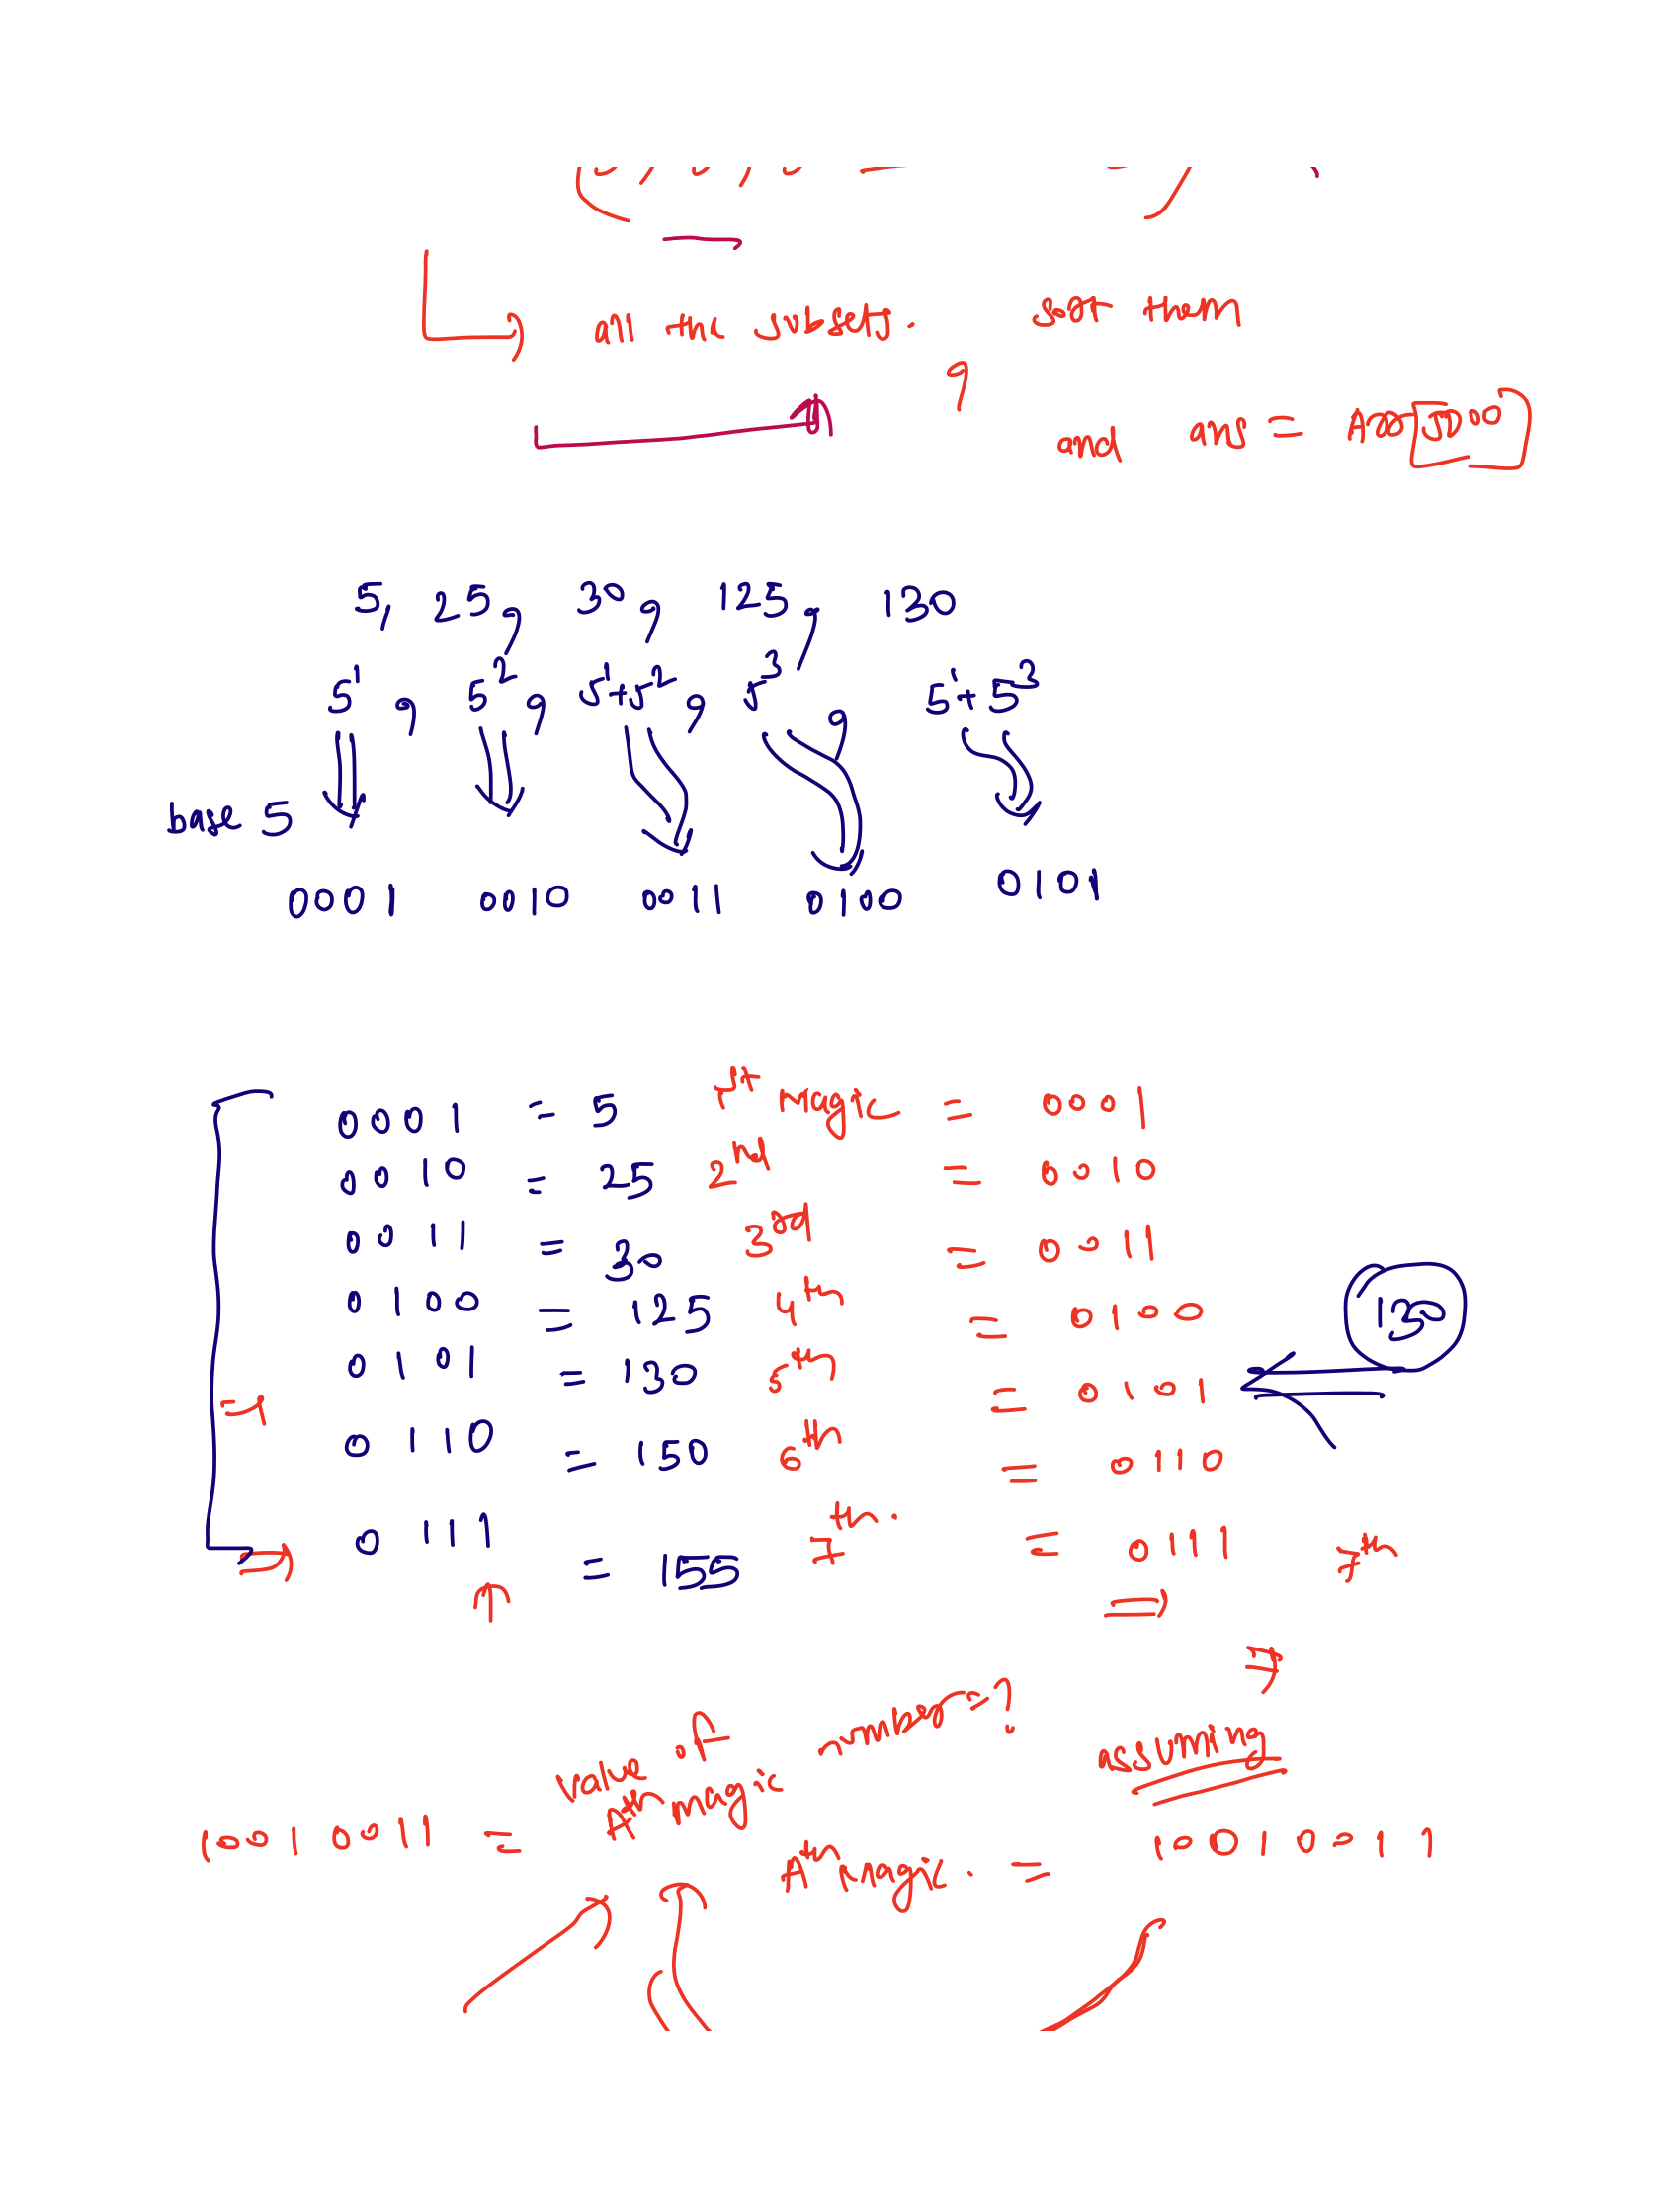 all the subsets. sort them
and ans = Arr[5000]
5, 25, 30, 125, 130
5¹, 5², 5¹+5², 5³, 5¹+5³
base 5
0001 0010 0011 0100 0101
0001 = 5 1st Magic = 0001
0010 = 25 2nd = 0010
0011 = 30 3rd = 0011
0100 = 125 4th = 0100
130
0101 = 130 5th = 0101
0110 = 150 6th = 0110
0111 = 155 7th. = 0111 7th
7
value of Ath magic number = ?
assuming
10010011 =
Ath Magic. = 10010011